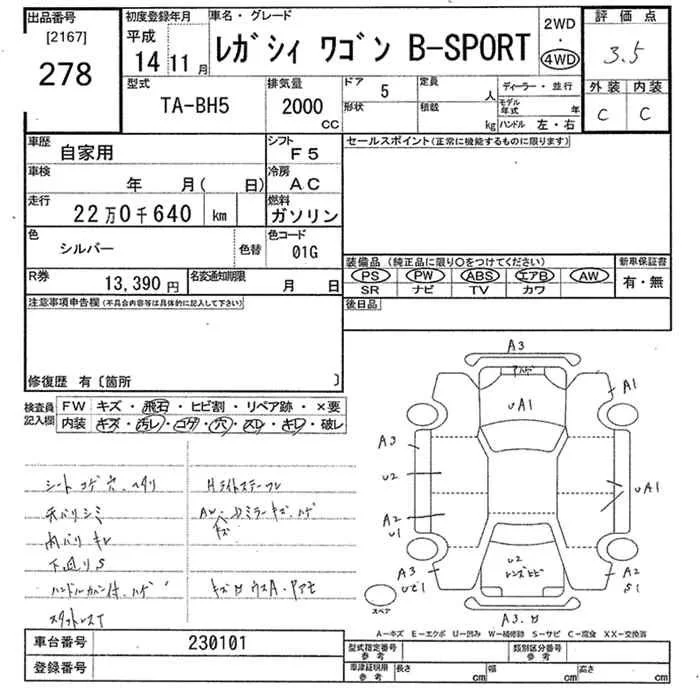 出品番号
[2167]
278
初度登録年月
平成
14 11月
車名・グレード
レガシィ ワゴン B-SPORT
2WD
・
4WD
評価点
3.5
外装 内装
C C
型式
TA-BH5
排気量
2000
CC
ドア 5
形状
定員 人
積載 kg
ディーラー・並行
モデル年式 年
ハンドル 左・右
車歴
自家用
シフト
F5
セールスポイント(正常に機能するものに限ります)
車検
年 月( 日)
冷房
AC
走行
22万0千640 km
燃料
ガソリン
色
シルバー
色替
色コード
01G
装備品(純正品に限り○をつけてください)
PS PW ABS エアB AW
SR ナビ TV カワ
新車保証書
有・無
R券
13,390円
名変通知期限
月 日
後日品
注意事項申告欄(不具合内容等は具体的に記入して下さい)
修復歴 有〔箇所 〕
検査員記入欄
FW キズ・飛石・ヒビ割・リペア跡・×要
内装 キズ・汚レ・コゲ・穴・スレ・キレ・破レ
シート コゲ 穴、ヘタリ
天バリシミ
内バリ キレ
下廻りS
ハンドルカバー付、ハゲ
スタットレスT
Hライトステープレ
AW、
キズ
ミラーキズ、ハゲ
A3
UA1
A1
A3
U2
UA1
A2
U1
A3
U2
A2
S1
スペア
A3
A-キズ E-エクボ U-凹み W-補修跡 S-サビ C-腐食 XX-交換済
車台番号
230101
登録番号
型式指定番号
参考
類別区分番号
参考
車庫証明用
参考
長さ cm
幅 cm
高さ cm